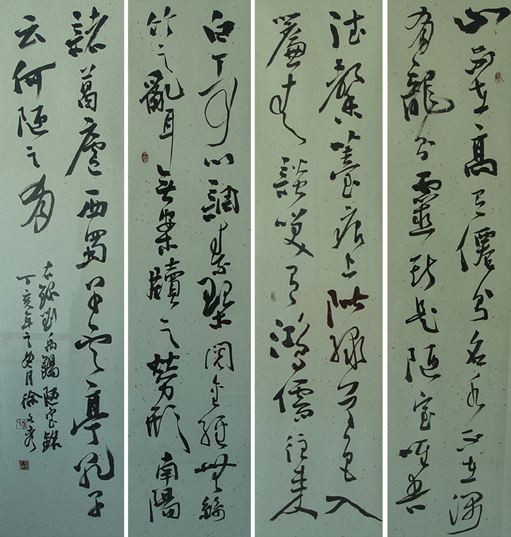 山不在高有僊則名水不在深
有龍則靈斯是陋室唯吾
德馨薹痕上階綠草色入
簾青談笑有鴻儒往來
白丁可以調素琴閱金經無絲
竹之亂耳無案牘之勞形南陽
諸葛廬西蜀子雲亭孔子
云何陋之有
右錄劉禹錫陋室銘
丁亥年之月徐